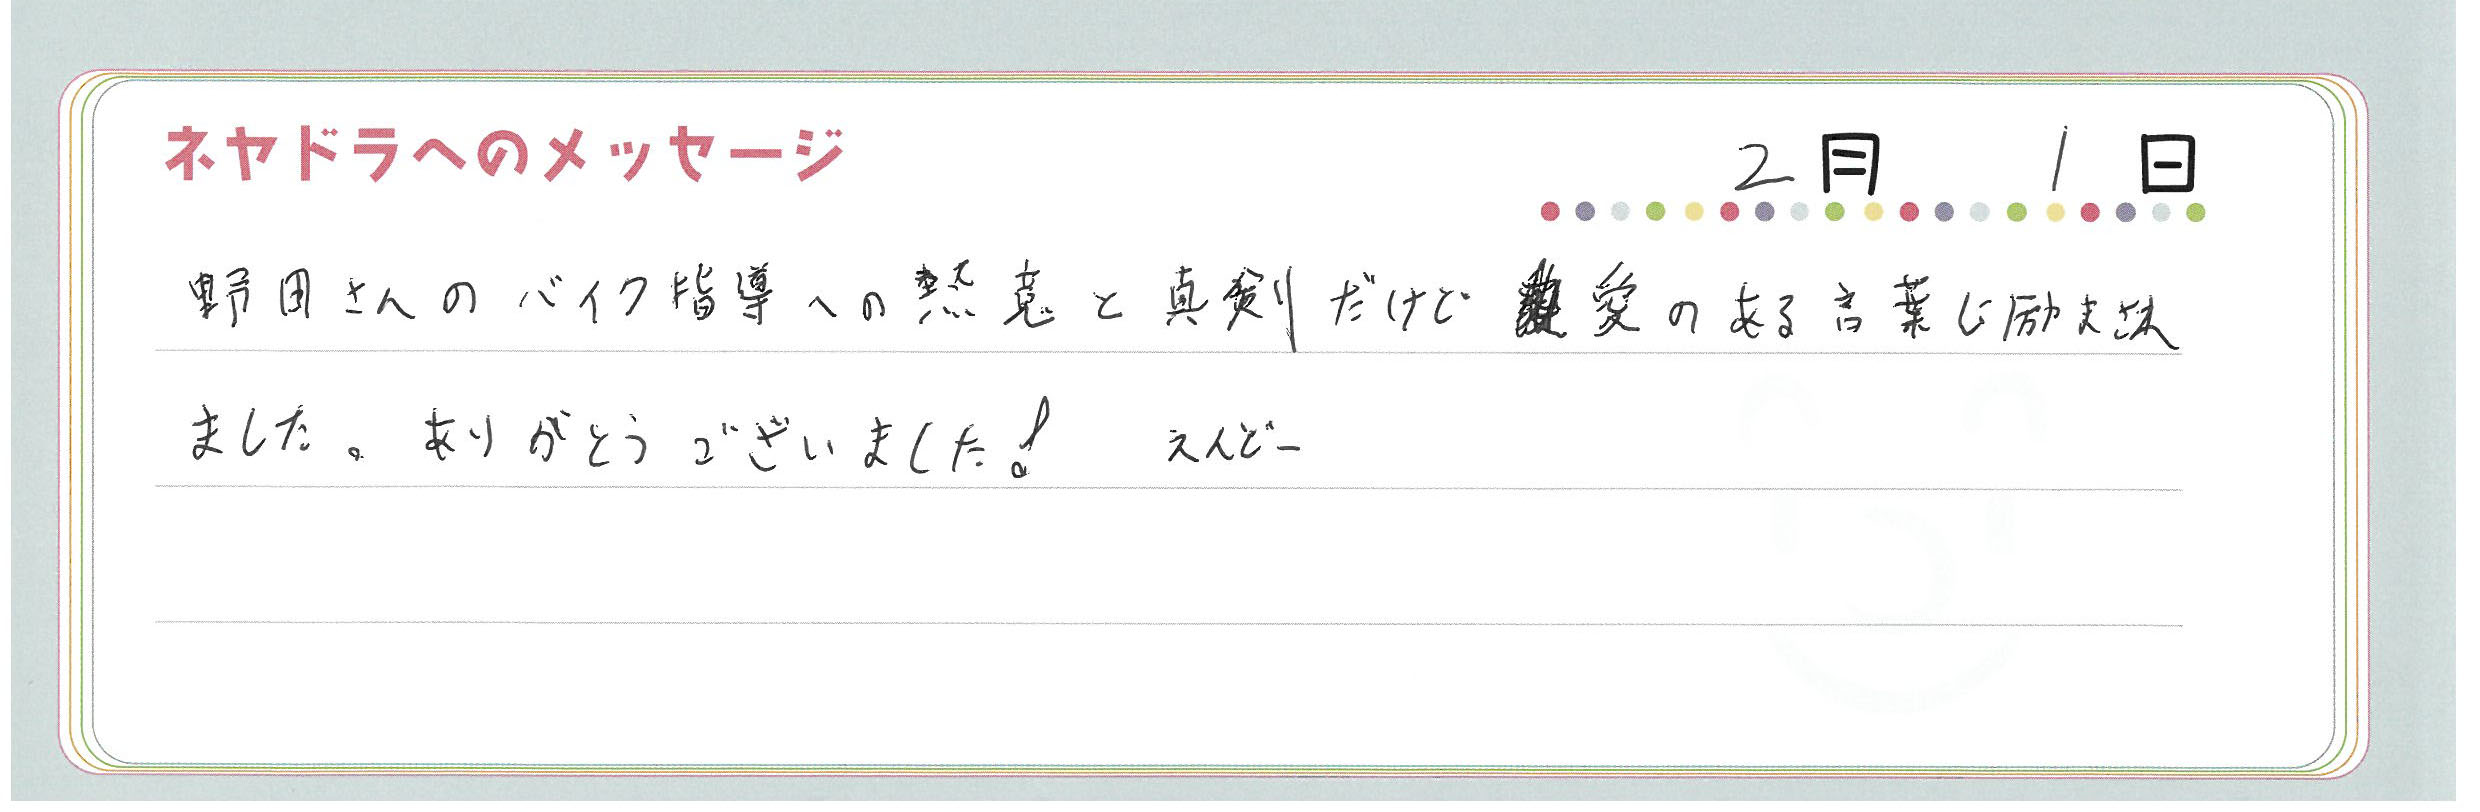 ネヤドラへのメッセージ
2月 1日
野田さんのバイク指導への熱意と真剣だけど愛のある言葉に励まされ
ました。ありがとうございました! えんどー